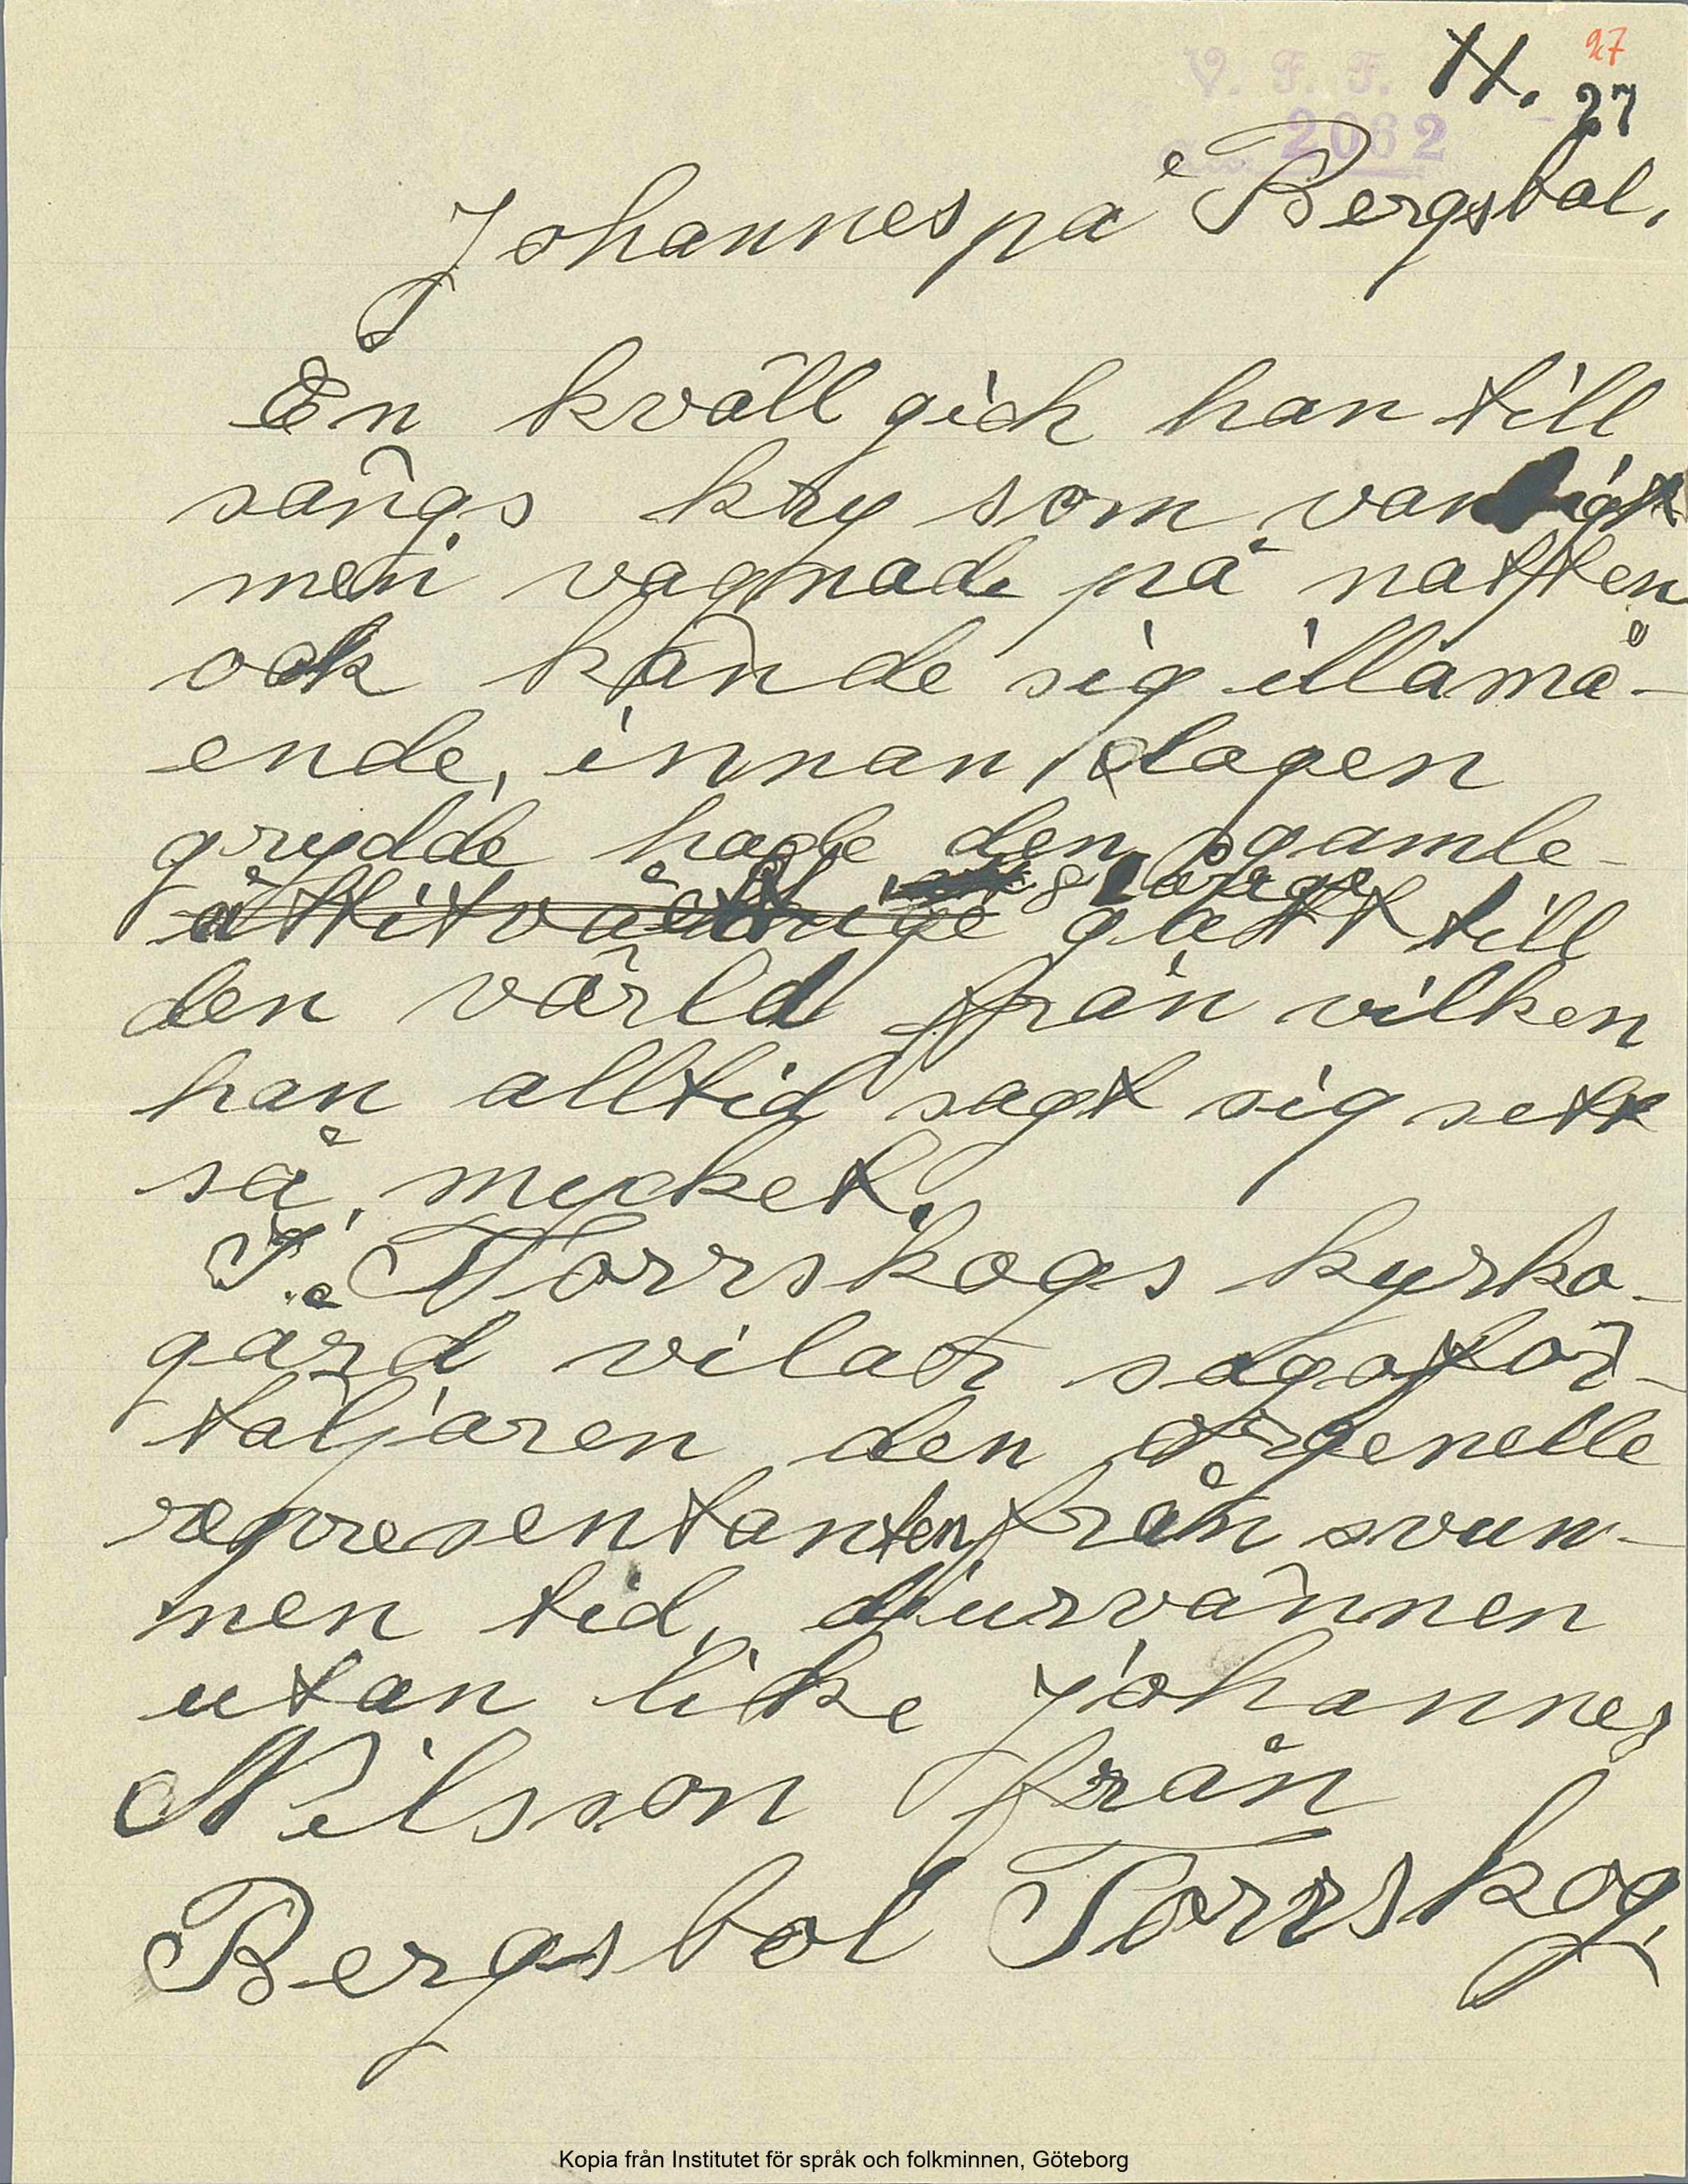 27
V. F. F. H. 27
2062
Johannes på Bergsbol.
En kväll gick han till
sängs kry som vanligt
men vagnade på natten
ock kände sig illamå-
ende, innan dagen
grydde hade den gamle
åttitvååringe gått till
den värld från vilken
han alltid sagt sig sett
så mycket.
I Torrskogs kyrko-
gård vilar sagoför-
täljaren den orgenelle
representanten från svun-
men tid, djurvännen
utan like Johannes
Nilsson från
Bergsbol Torrskog.
Kopia från Institutet för språk och folkminnen, Göteborg